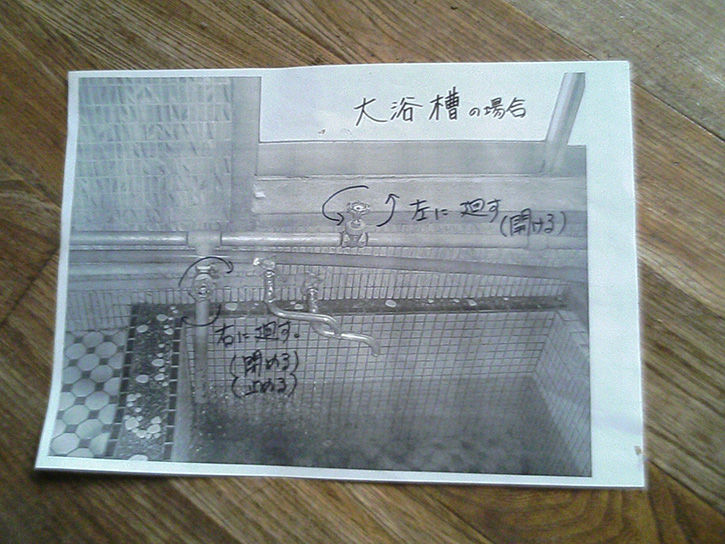 大浴槽の場合
左に廻す
(開ける)
右に廻す。
(閉める)
(止める)